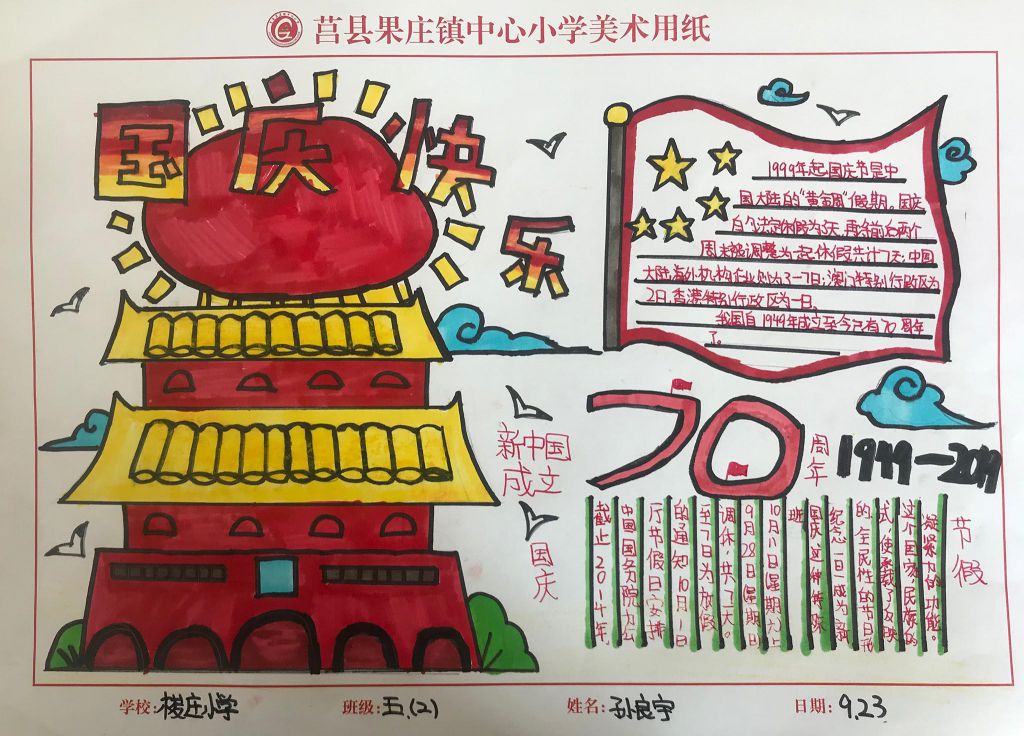 莒县果庄镇中心小学美术用纸
国庆快乐
1999年起,国庆节是中
国大陆的“黄金周”假期。国庆
的法定休假为3天,再将前后两个
周末被调整为一起休假共计7天;中国
大陆海外机构企业则为3—7日;澳门特别行政区为
2日,香港特别行政区为一日。
我国自1949年成立至今已有70周年
了。
70
周年
1949—2019
新中国
成立
国庆
节假
凝聚力的功能。
这个国家,民族的
式,使承载了反映
的、全民性的节日形
纪念一日一成为新
国庆这种特殊
班
9月28日(星期日)
调休,共7天。
至7日为放假
的通知10月1日
厅节假日安排
中国国务院办公
截止2014年,
学校:楼庄小学
班级:五.(2)
姓名:孙良宇
日期:9.23